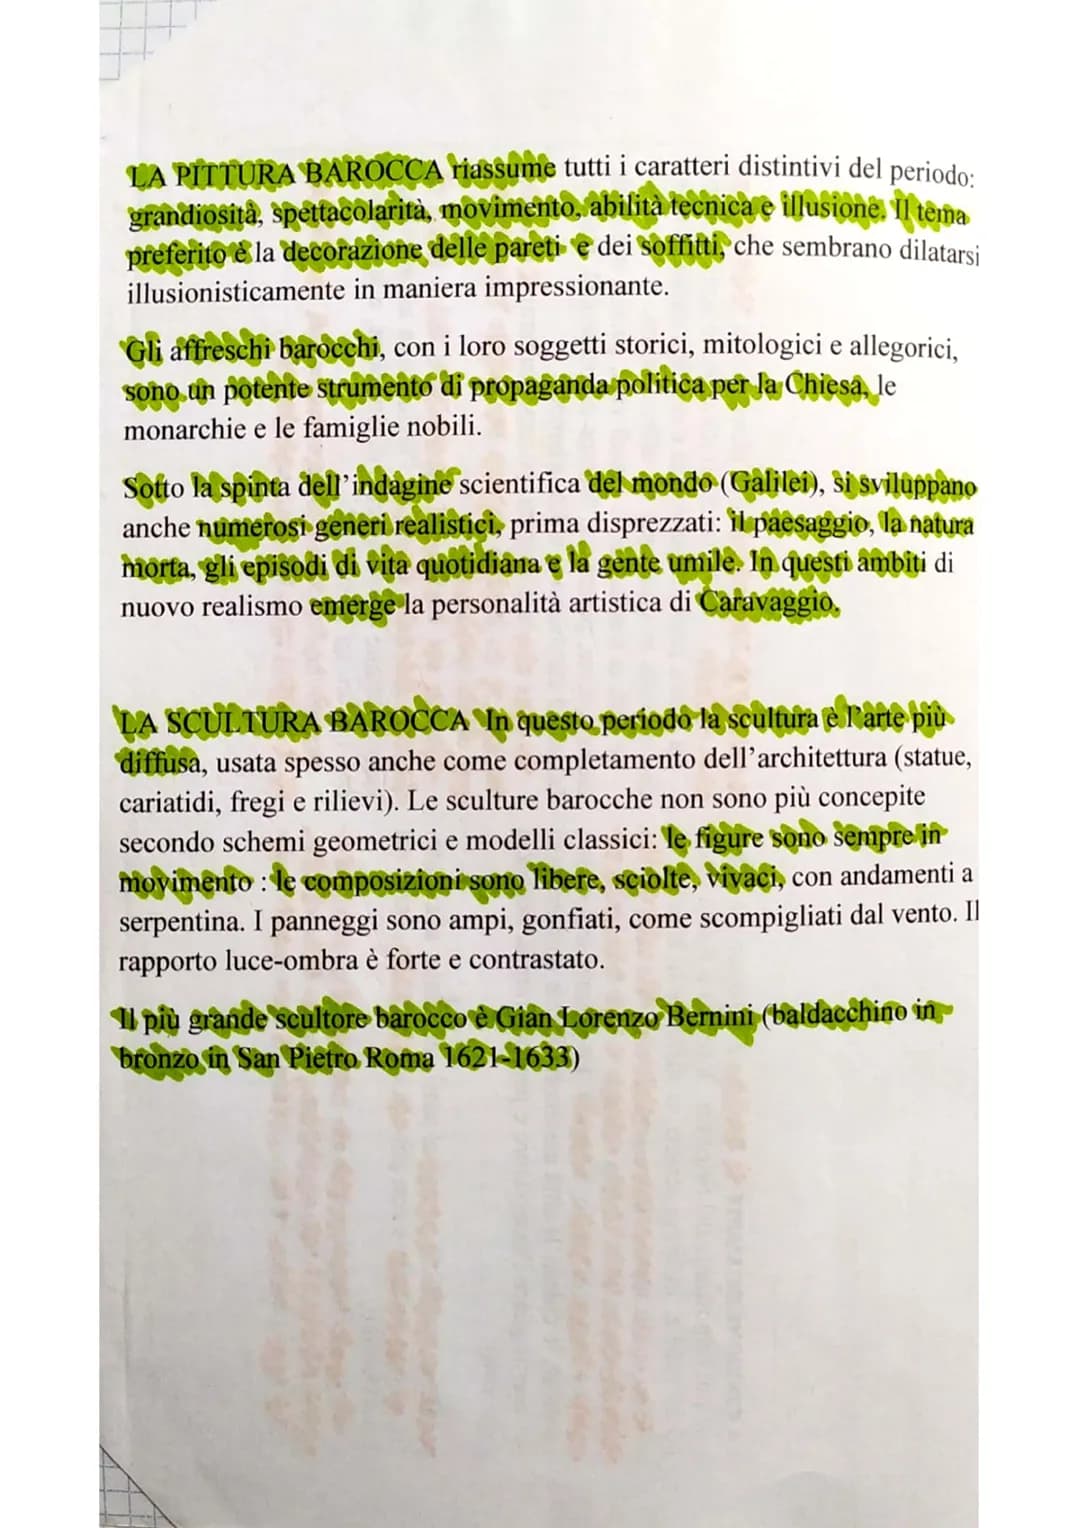 LA PITTURA BAROCCA riassume tutti i caratteri distintivi del periodo:
grandiosità, spettacolarità, movimento, abilità tecnica e illusione. Il tema
preferito è la decorazione delle pareti e dei soffitti, che sembrano dilatarsi
illusionisticamente in maniera impressionante.
Gli affreschi barocchi, con i loro soggetti storici, mitologici e allegorici,
sono un potente strumento di propaganda politica per la Chiesa, le
monarchie e le famiglie nobili.
Sotto la spinta dell'indagine scientifica del mondo (Galilei), si sviluppano
anche numerosi generi realistici, prima disprezzati: il paesaggio, la natura
morta, gli episodi di vita quotidiana e la gente umile. In questi ambiti di
nuovo realismo emerge la personalità artistica di Caravaggio.
LA SCULTURA BAROCCA In questo periodo la scultura è l'arte più
diffusa, usata spesso anche come completamento dell'architettura (statue,
cariatidi, fregi e rilievi). Le sculture barocche non sono più concepite
secondo schemi geometrici e modelli classici: le figure sono sempre in
movimento : le composizioni sono libere, sciolte, vivaci, con andamenti a
serpentina. I panneggi sono ampi, gonfiati, come scompigliati dal vento. Il
rapporto luce-ombra è forte e contrastato.
Il più grande scultore barocco è Gian Lorenzo Bernini (baldacchino in
bronzo in San Pietro Roma 1621-1633)